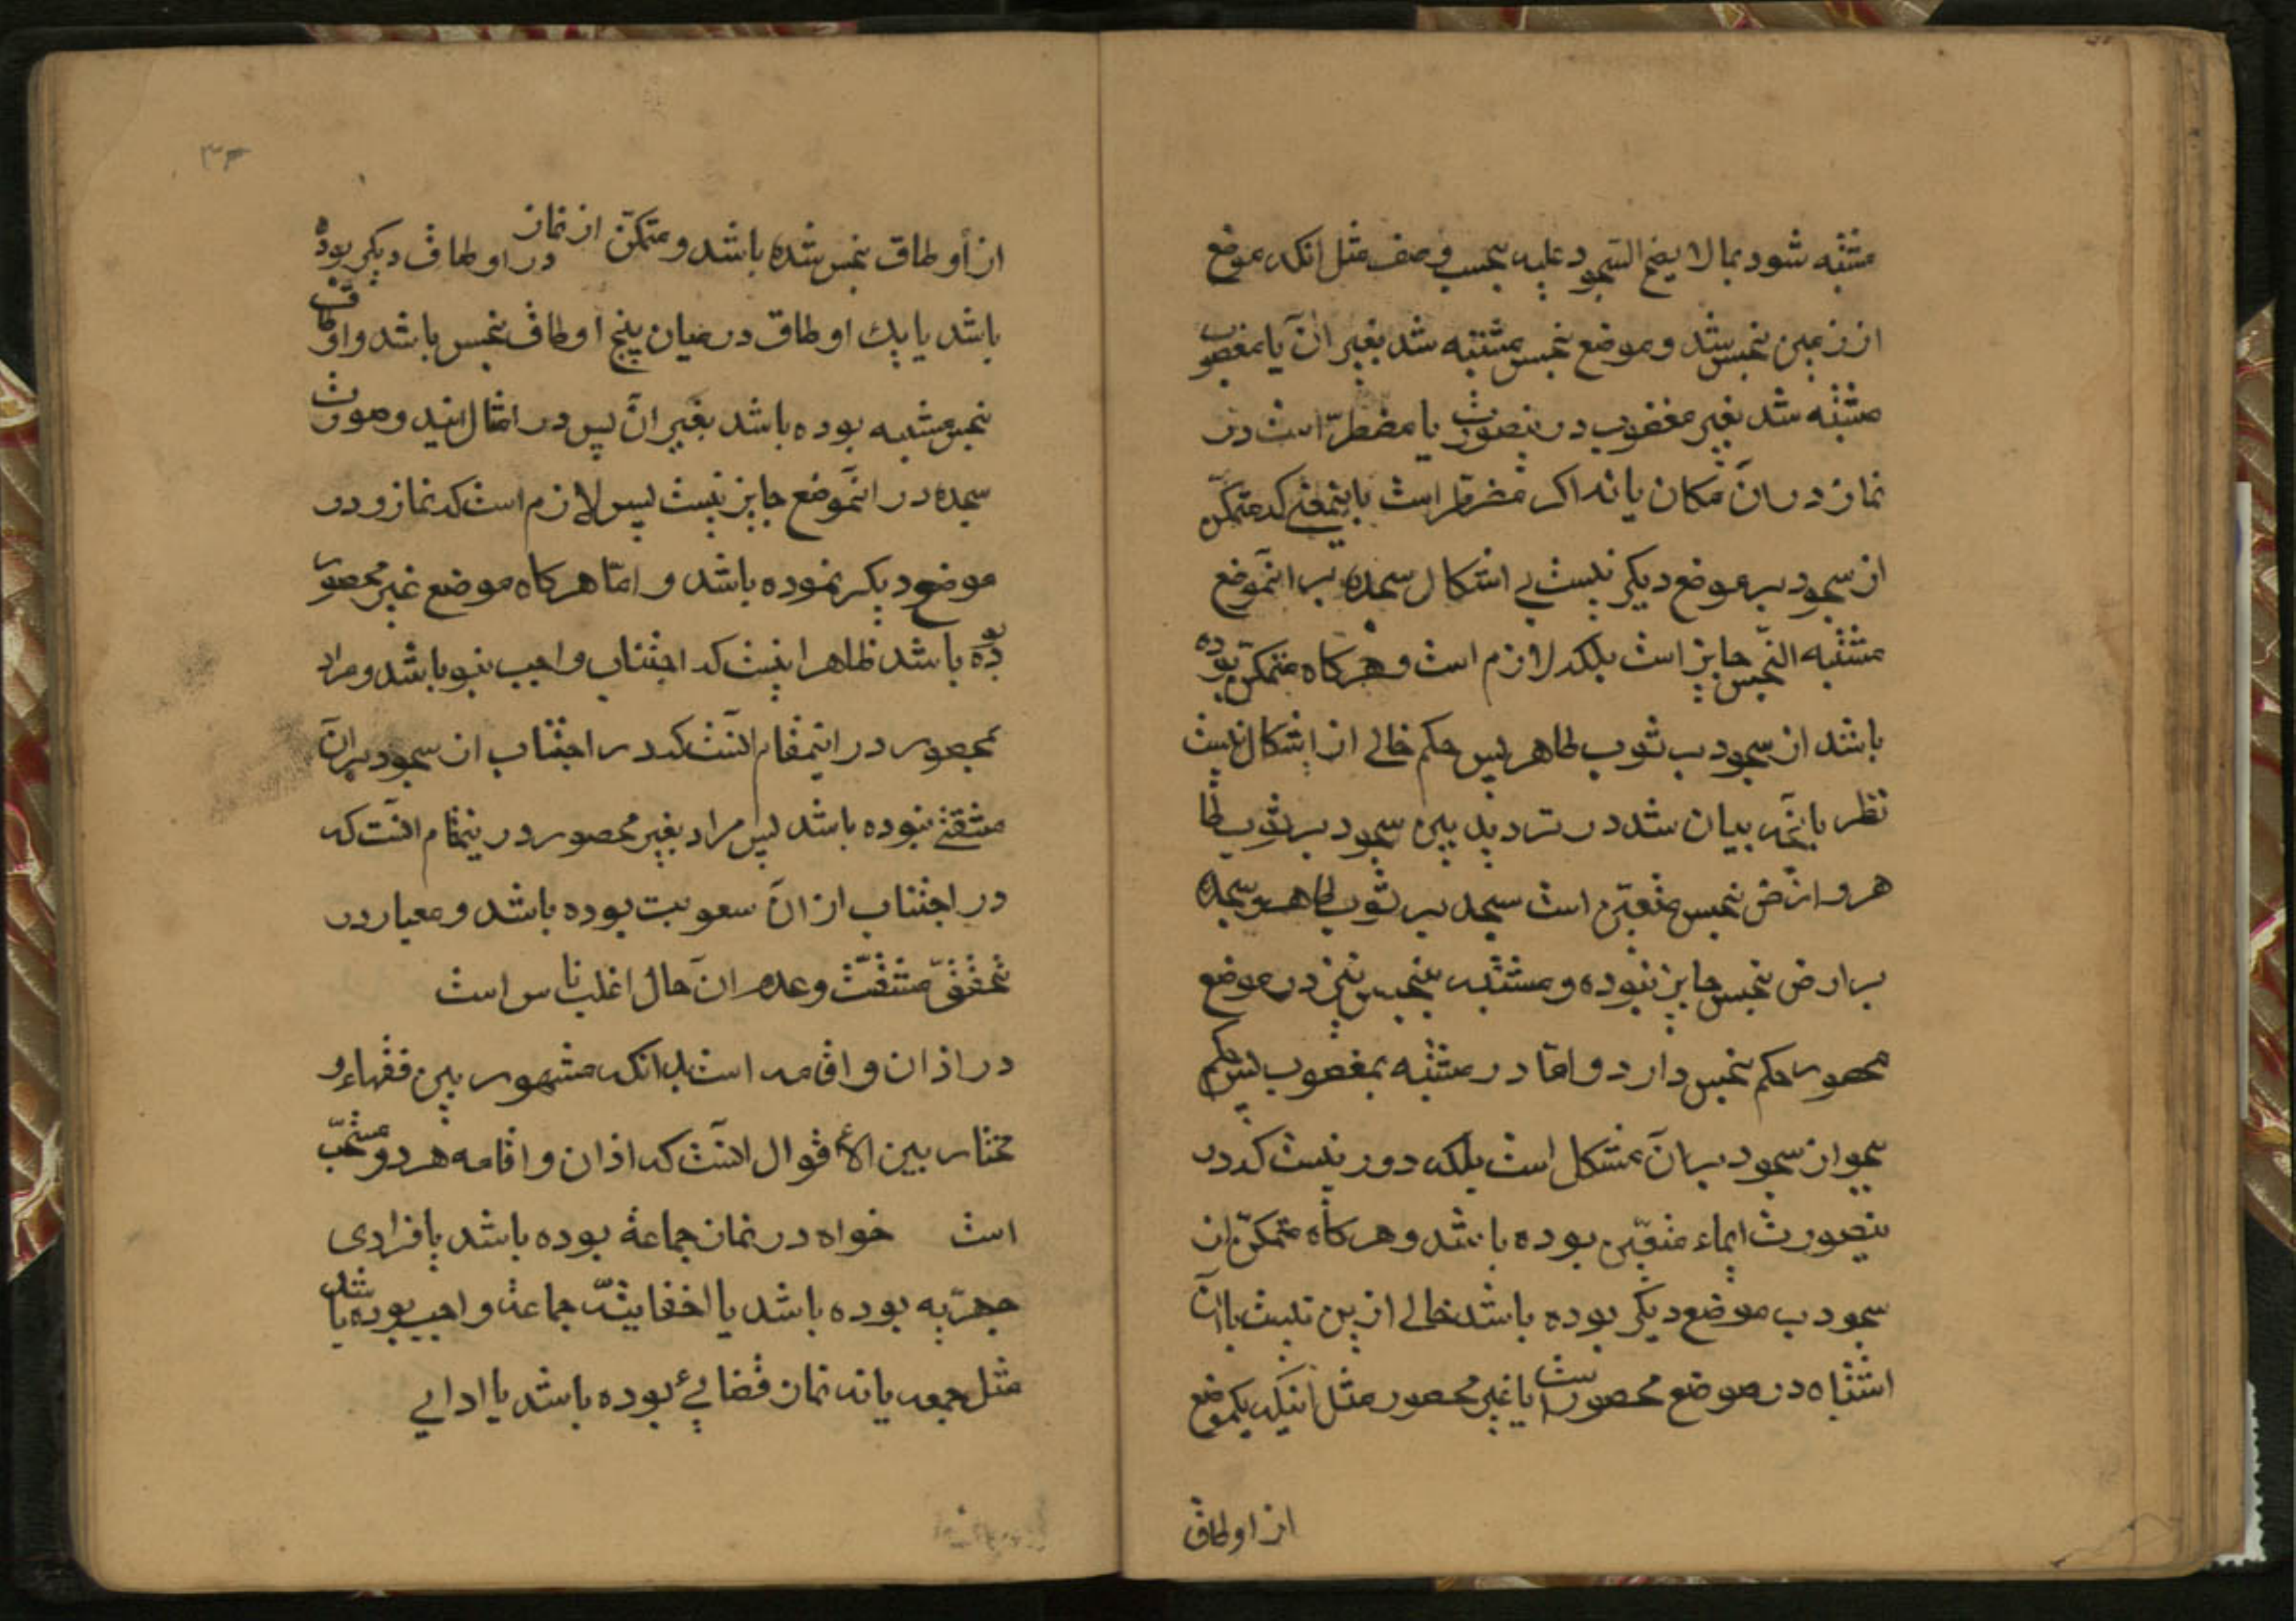 مشتبه شود بما لا یصح السجود علیه بحسب وصف مثل انکه موضع
از زمین نجس شد و موضع نجس مشتبه شد بغیر ان یا مغصوب
مشتبه شد بغیر مغصوب در ینصورت یا مضطرّ است در
نماز در ان مکان یا نه اکر مضرطر است باینمعنے که متمکن
از سجود بر موضع دیکر نیست بے اشکال سجده بر انموضع
مشتبه النجس جایز است بلکه لازم است و هرکاه متمکن بوده
باشد از سجود ب ثوب طاهر پس حکم خالے از اشکال نیست
نظر بانچه بیان شد در تردید بین سجود بر ثوب طا
هر و ارض نجس متعین است سجد بر ثوب طاهر و سجده
بر ارض نجس جایز نبوده و مشتبه بنجس نیز در موضع
محصور حکم نجس دارد و امّا در مشتبه بمغصوب پس حکم
بجواز سجود بر ان مشکل است بلکه دور نیست که در
ینصورت ایماء متعیّن بوده باشد و هرکاه متمکنّ از
سجود ب موضع دیکر بوده باشد خالے ازین نیست یا ان
اشتباه در موضع محصور است یا غیر محصور مثل اینکه یکموضع
از اوطاق
۳۴
از أوطاق نجس شده باشد و متمکنّ از نماز در اوطاق دیکر بوده
باشد یا یک اوطاق در میان پنج اوطاق نجس باشد و اوطاق
نجس مشتبه بوده باشد بغیر ان پس در امثال ایند و صورت
سجده در انموضع جایز نیست پس لازم است که نماز و در
موضع دیکر نموده باشد و امّا هرکاه موضع غیر محصور
بوده باشد ظاهر اینست که اجتناب واجب نبو باشد و مراد
بمحصور در اینمقام انست که در اجتناب از سجود بر ان
مشقتے نبوده باشد پس مراد بغیر محصور در ینمقام انست که
در اجتناب از ان سعوبت بوده باشد و معیار در
تحقق مشقت و عدم ان حال اغلب ناس است
در اذان و اقامه است بدانکه مشهور بین فقهاء و
مختار بین الأقوال انست که اذان و اقامه هر دو مستحبّ
است خواه در نماز جماعة بوده باشد یا فرادی
جهرّیه بوده باشد یا اخفایثّه جماعة واجب بوده باشد
مثل جمعه یا نه نماز قضایئ بوده باشد یا ادایے